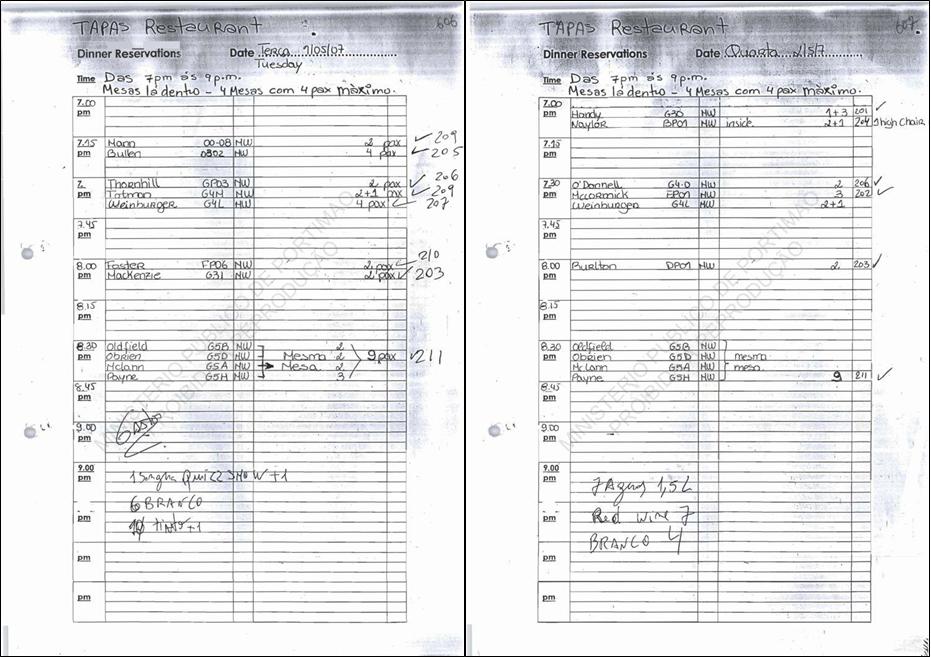 TAPAS Restaurant 606
Dinner Reservations Date Terca 1/05/07
Tuesday
Time Das 7pm ás 9p.m.
Mesas la dentro - 4 Mesas com 4 pax màximo.
7.00
pm
7.15 Mann 00-08 NW 2 pax ✓ 209
pm Bullen 0302 NW 4 pax ✓ 205
7. Thornhill GP03 NW 2 pax ✓ 206
pm Totman G4M NW 2+1 pax ✓ 209
Weinburger G4L NW 4 pax ✓ 207
7.45
pm
8.00 Foster FP06 NW 2 pax ✓ 210
pm MacKenzie G31 NW 2 pax ✓ 203
8.15
pm
8.30 Oldfield G5B NW 2
pm Obrien G5D NW Mesma 2 9 pax ✓ 211
Mclann G5A NW Mesa 2
Payne G5H NW 3
8.45
pm
9.00
pm
9.00
6 BRANCO
pm
pm
pm
MINISTERIO PUBLICO DE PORTIMAO
PROIBIDA REPRODUÇÃO
TAPAS Restaurant 607.
Dinner Reservations Date Quarta 2/5/7
Time Das 7pm ás 9p.m.
Mesas la dentro - 4 Mesas com 4 pax màximo.
7.00
pm Handy G30 NW 1+3 201 ✓
Naylor BP01 NW inside. 2+1 204 1 high Chair
7.15
pm
7.30 O'Donnell G4-O NW 2 206 ✓
pm McCormick FP01 NW 3 202 ✓
Weinburger G4L NW 2+1
7.45
pm
8.00 Burlton DP01 NW 2 203 ✓
pm
8.15
pm
8.30 Oldfield G5B NW
pm Obrien G5D NW mesma
Mc Lann G5A NW mesa.
Payne G5H NW 9 211 ✓
8.45
pm
9.00
pm
9.00
7 Aguas 1,5L
pm Red Wine 7
BRANCO 4
pm
pm
MINISTERIO PUBLICO DE PORTIMAO
PROIBIDA REPRODUÇÃO